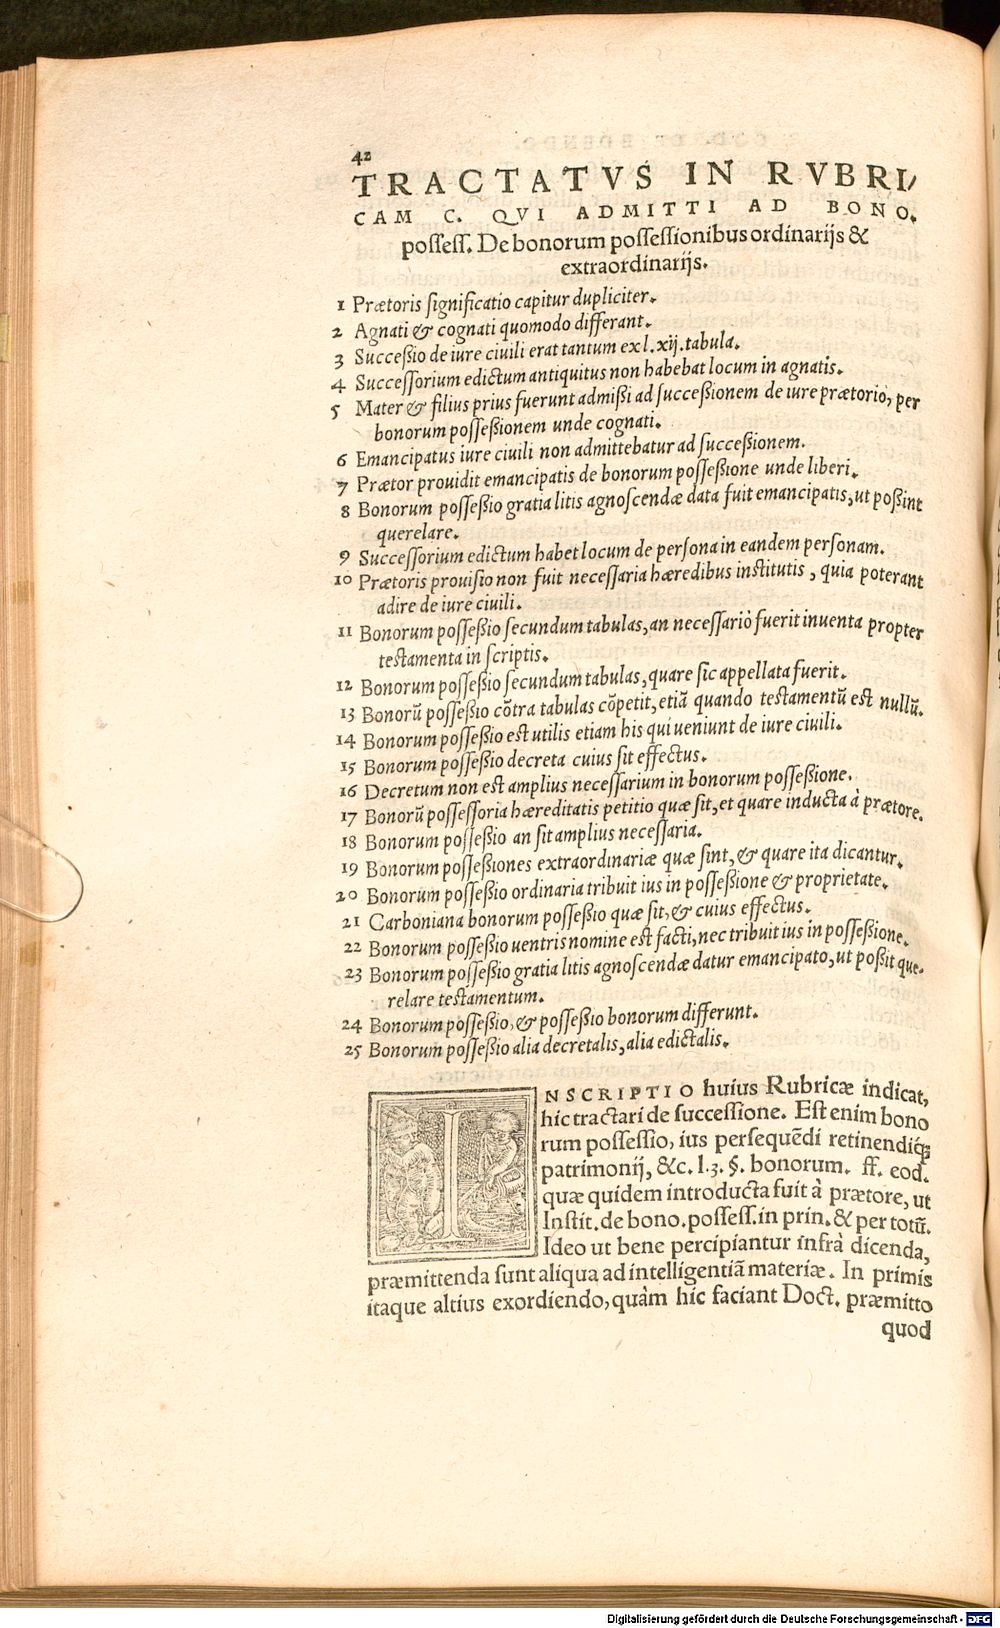 42
TRACTATVS IN RVBRI/
CAM C. QVI ADMITTI AD BONO.
possess. De bonorum possessionibus ordinarijs &
extraordinarijs.
1 Prætoris significatio capitur dupliciter.
2 Agnati & cognati quomodo differant.
3 Successio de iure ciuili erat tantum ex l. xij. tabula.
4 Successorium edictum antiquitus non habebat locum in agnatis.
5 Mater & filius prius fuerunt admissi ad successionem de iure prætorio, per
bonorum possessionem unde cognati.
6 Emancipatus iure ciuili non admittebatur ad successionem.
7 Prætor prouidit emancipatis de bonorum possessione unde liberi.
8 Bonorum possessio gratia litis agnoscendæ data fuit emancipatis, ut possint
querelare.
9 Successorium edictum habet locum de persona in eandem personam.
10 Prætoris prouisio non fuit necessaria hæredibus institutis, quia poterant
adire de iure ciuili.
11 Bonorum possessio secundum tabulas, an necessariò fuerit inuenta propter
testamenta in scriptis.
12 Bonorum possessio secundum tabulas, quare sic appellata fuerit.
13 Bonorū possessio cōtra tabulas cōpetit, etiā quando testamentū est nullū.
14 Bonorum possessio est utilis etiam his qui ueniunt de iure ciuili.
15 Bonorum possessio decreta cuius sit effectus.
16 Decretum non est amplius necessarium in bonorum possessione.
17 Bonorū possessoria hæreditatis petitio quæ sit, et quare inducta à prætore.
18 Bonorum possessio an sit amplius necessaria.
19 Bonorum possessiones extraordinariæ quæ sint, & quare ita dicantur.
20 Bonorum possessio ordinaria tribuit ius in possessione & proprietate.
21 Carboniana bonorum possessio quæ sit, & cuius effectus.
22 Bonorum possessio uentris nomine est facti, nec tribuit ius in possessione.
23 Bonorum possessio gratia litis agnoscendæ datur emancipato, ut possit que-
relare testamentum.
24 Bonorum possessio, & possessio bonorum differunt.
25 Bonorum possessio alia decretalis, alia edictalis.
INSCRIPTIO huius Rubricæ indicat,
hic tractari de successione. Est enim bono
rum possessio, ius persequēdi retinendiq́;
patrimonij, &c. l. 3. §. bonorum. ff. eod.
quæ quidem introducta fuit à prætore, ut
Instit. de bono. possess. in prin. & per totū.
Ideo ut bene percipiantur infrà dicenda,
præmittenda sunt aliqua ad intelligentiā materiæ. In primis
itaque altius exordiendo, quàm hic faciant Doct. præmitto
quod
Digitalisierung gefördert durch die Deutsche Forschungsgemeinschaft - DFG